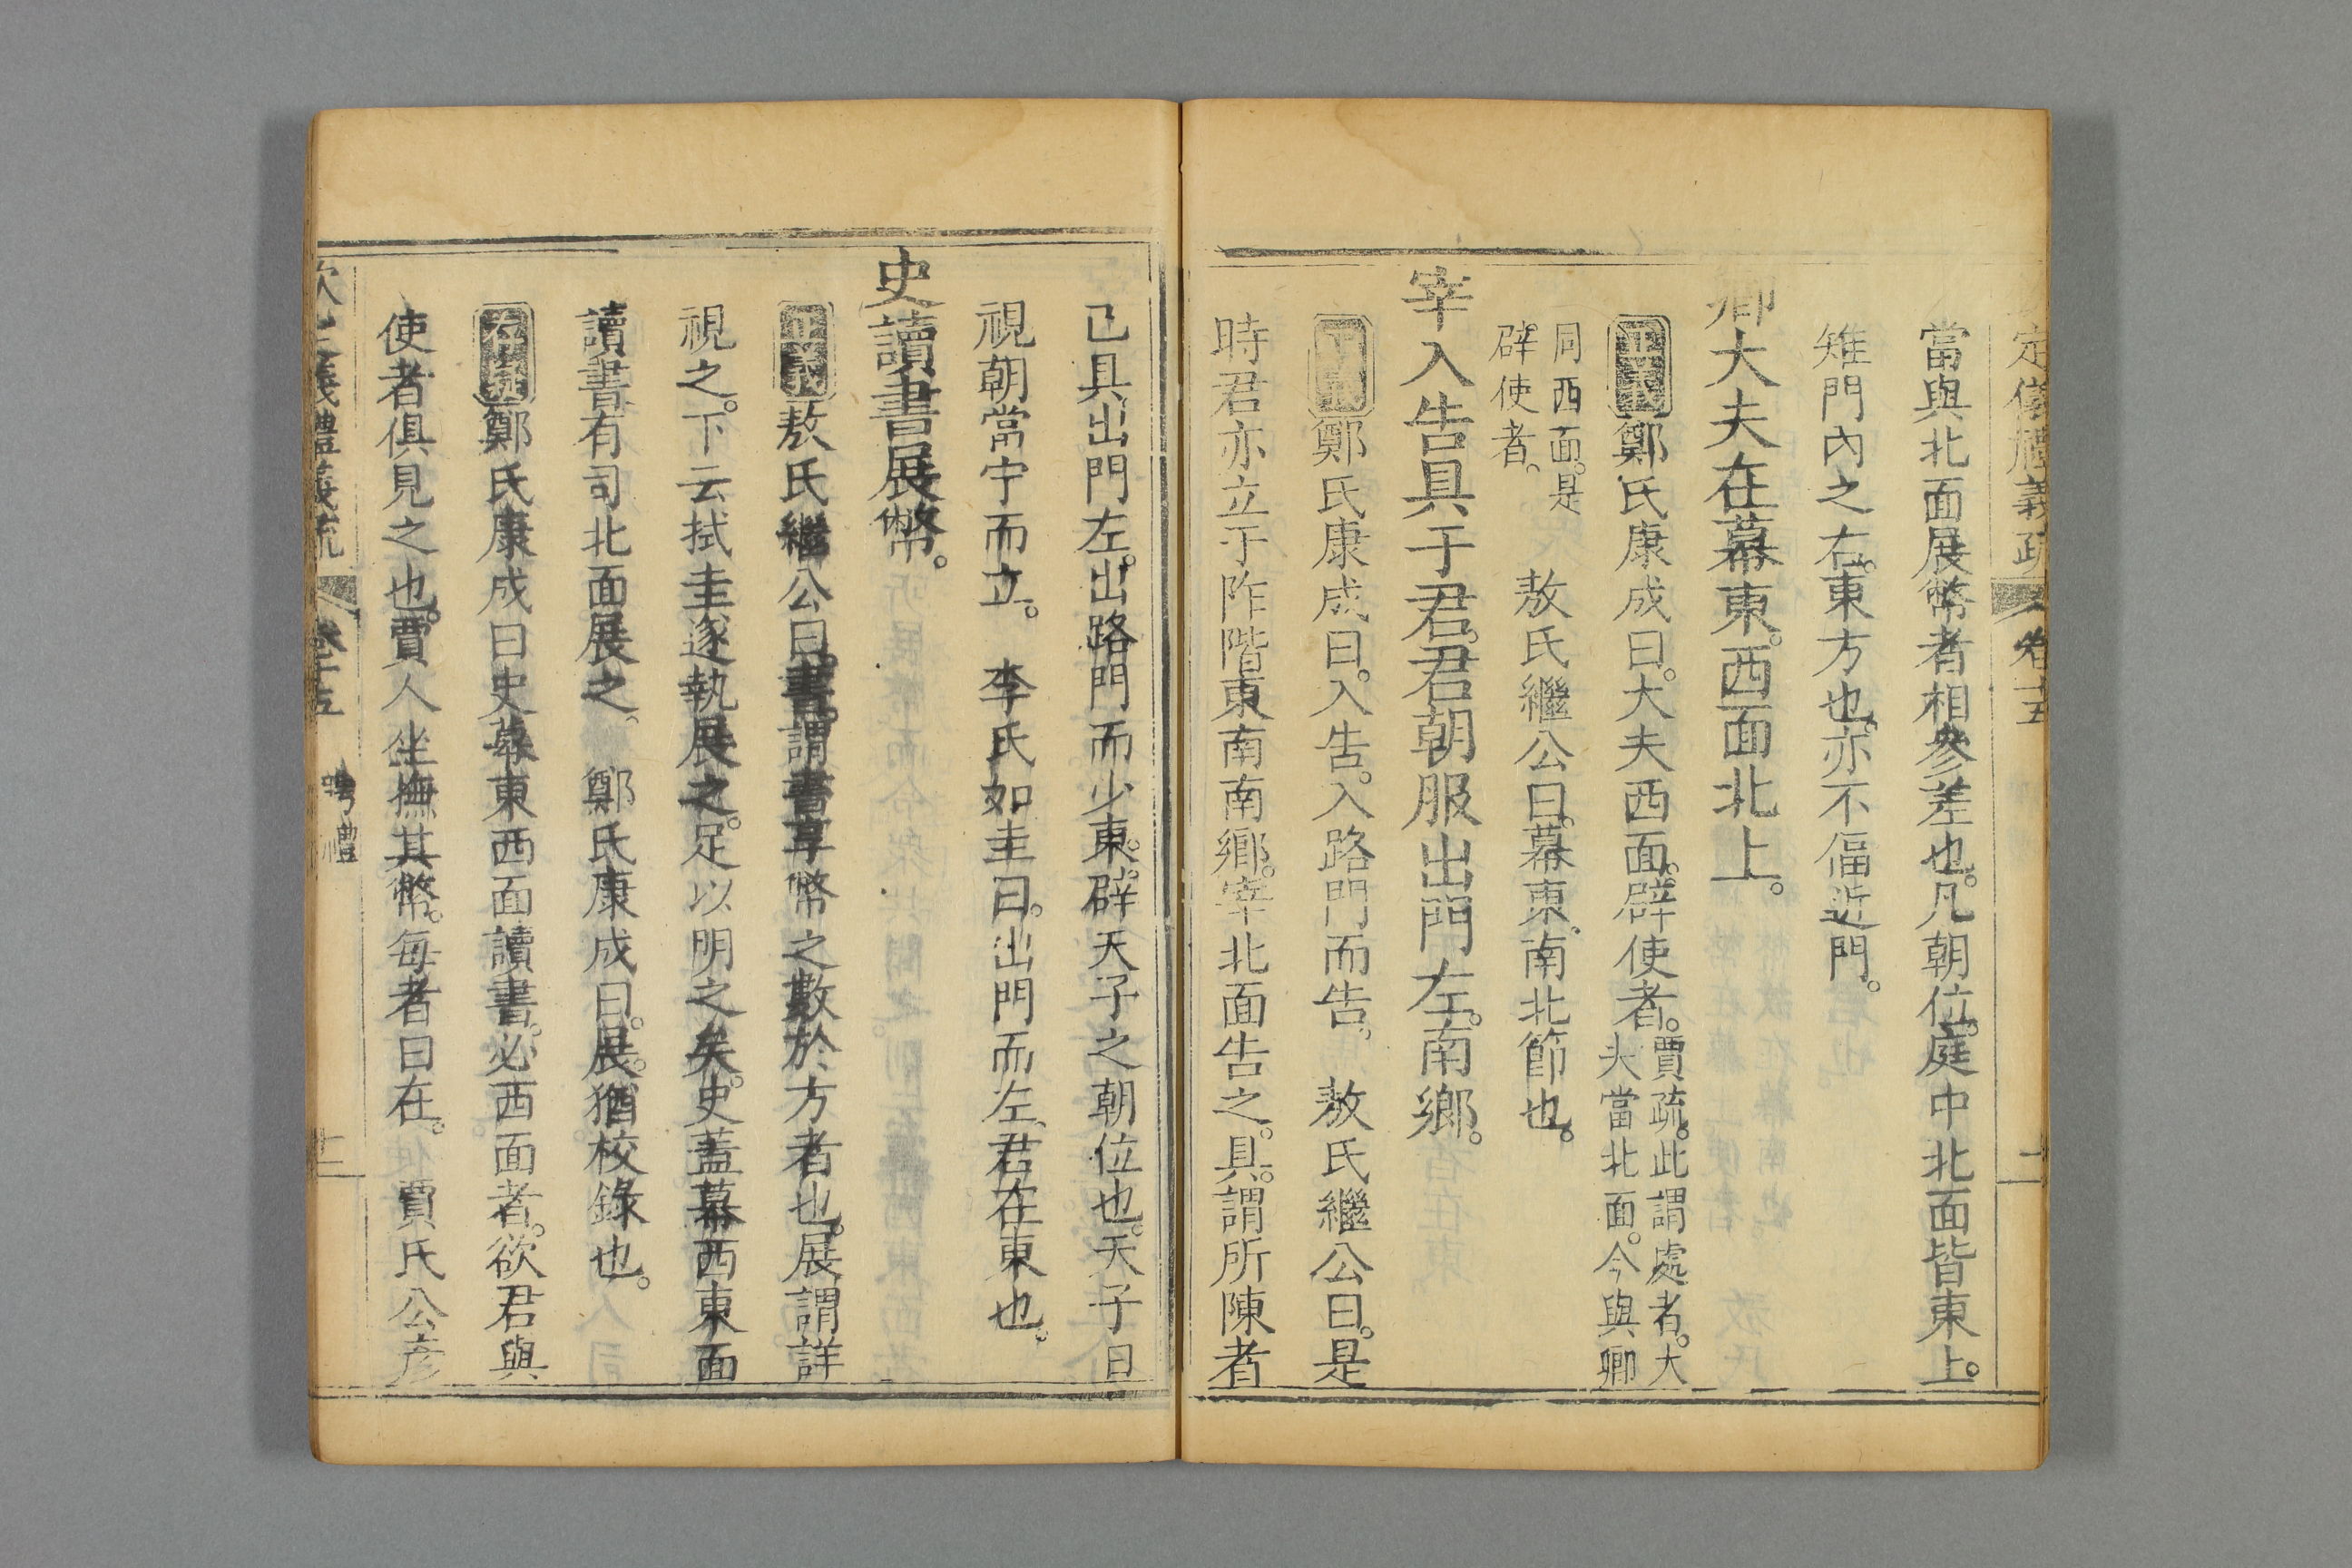 定儀禮義疏 卷十五 二
當與北面展幣者相參差也。凡朝位。庭中北面皆東上。
雉門內之右。東方也。亦不偪近門。
卿大夫在幕東。西面北上。
正義鄭氏康成曰。大夫西面。辟使者。賈疏。此謂處者。大夫當北面。今與卿
同西面。是辟使者。 敖氏繼公曰。幕東。南北節也。
宰入告具于君。君朝服出門左。南鄉。
正義鄭氏康成曰。入告。入路門而告。 敖氏繼公曰。是
時君亦立于阼階東南南鄉。宰北面告之。具。謂所陳者
已具出門左。出路門而少東。辟天子之朝位也。天子日
視朝當宁而立。 李氏如圭曰。出門而左。君在東也。
史讀書展幣。
正義敖氏繼公曰。書。謂書享幣之數於方者也。展謂詳
視之。下云拭圭遂執展之。足以明之矣。史蓋幕西東面
讀書。有司北面展之。 鄭氏康成曰。展。猶校錄也。
存疑鄭氏康成曰史幕東西面讀書。必西面者。欲君與
使者俱見之也。賈人坐撫其幣。每者曰在。 賈氏公彥
欽定儀禮義疏 卷十五 聘禮 十二